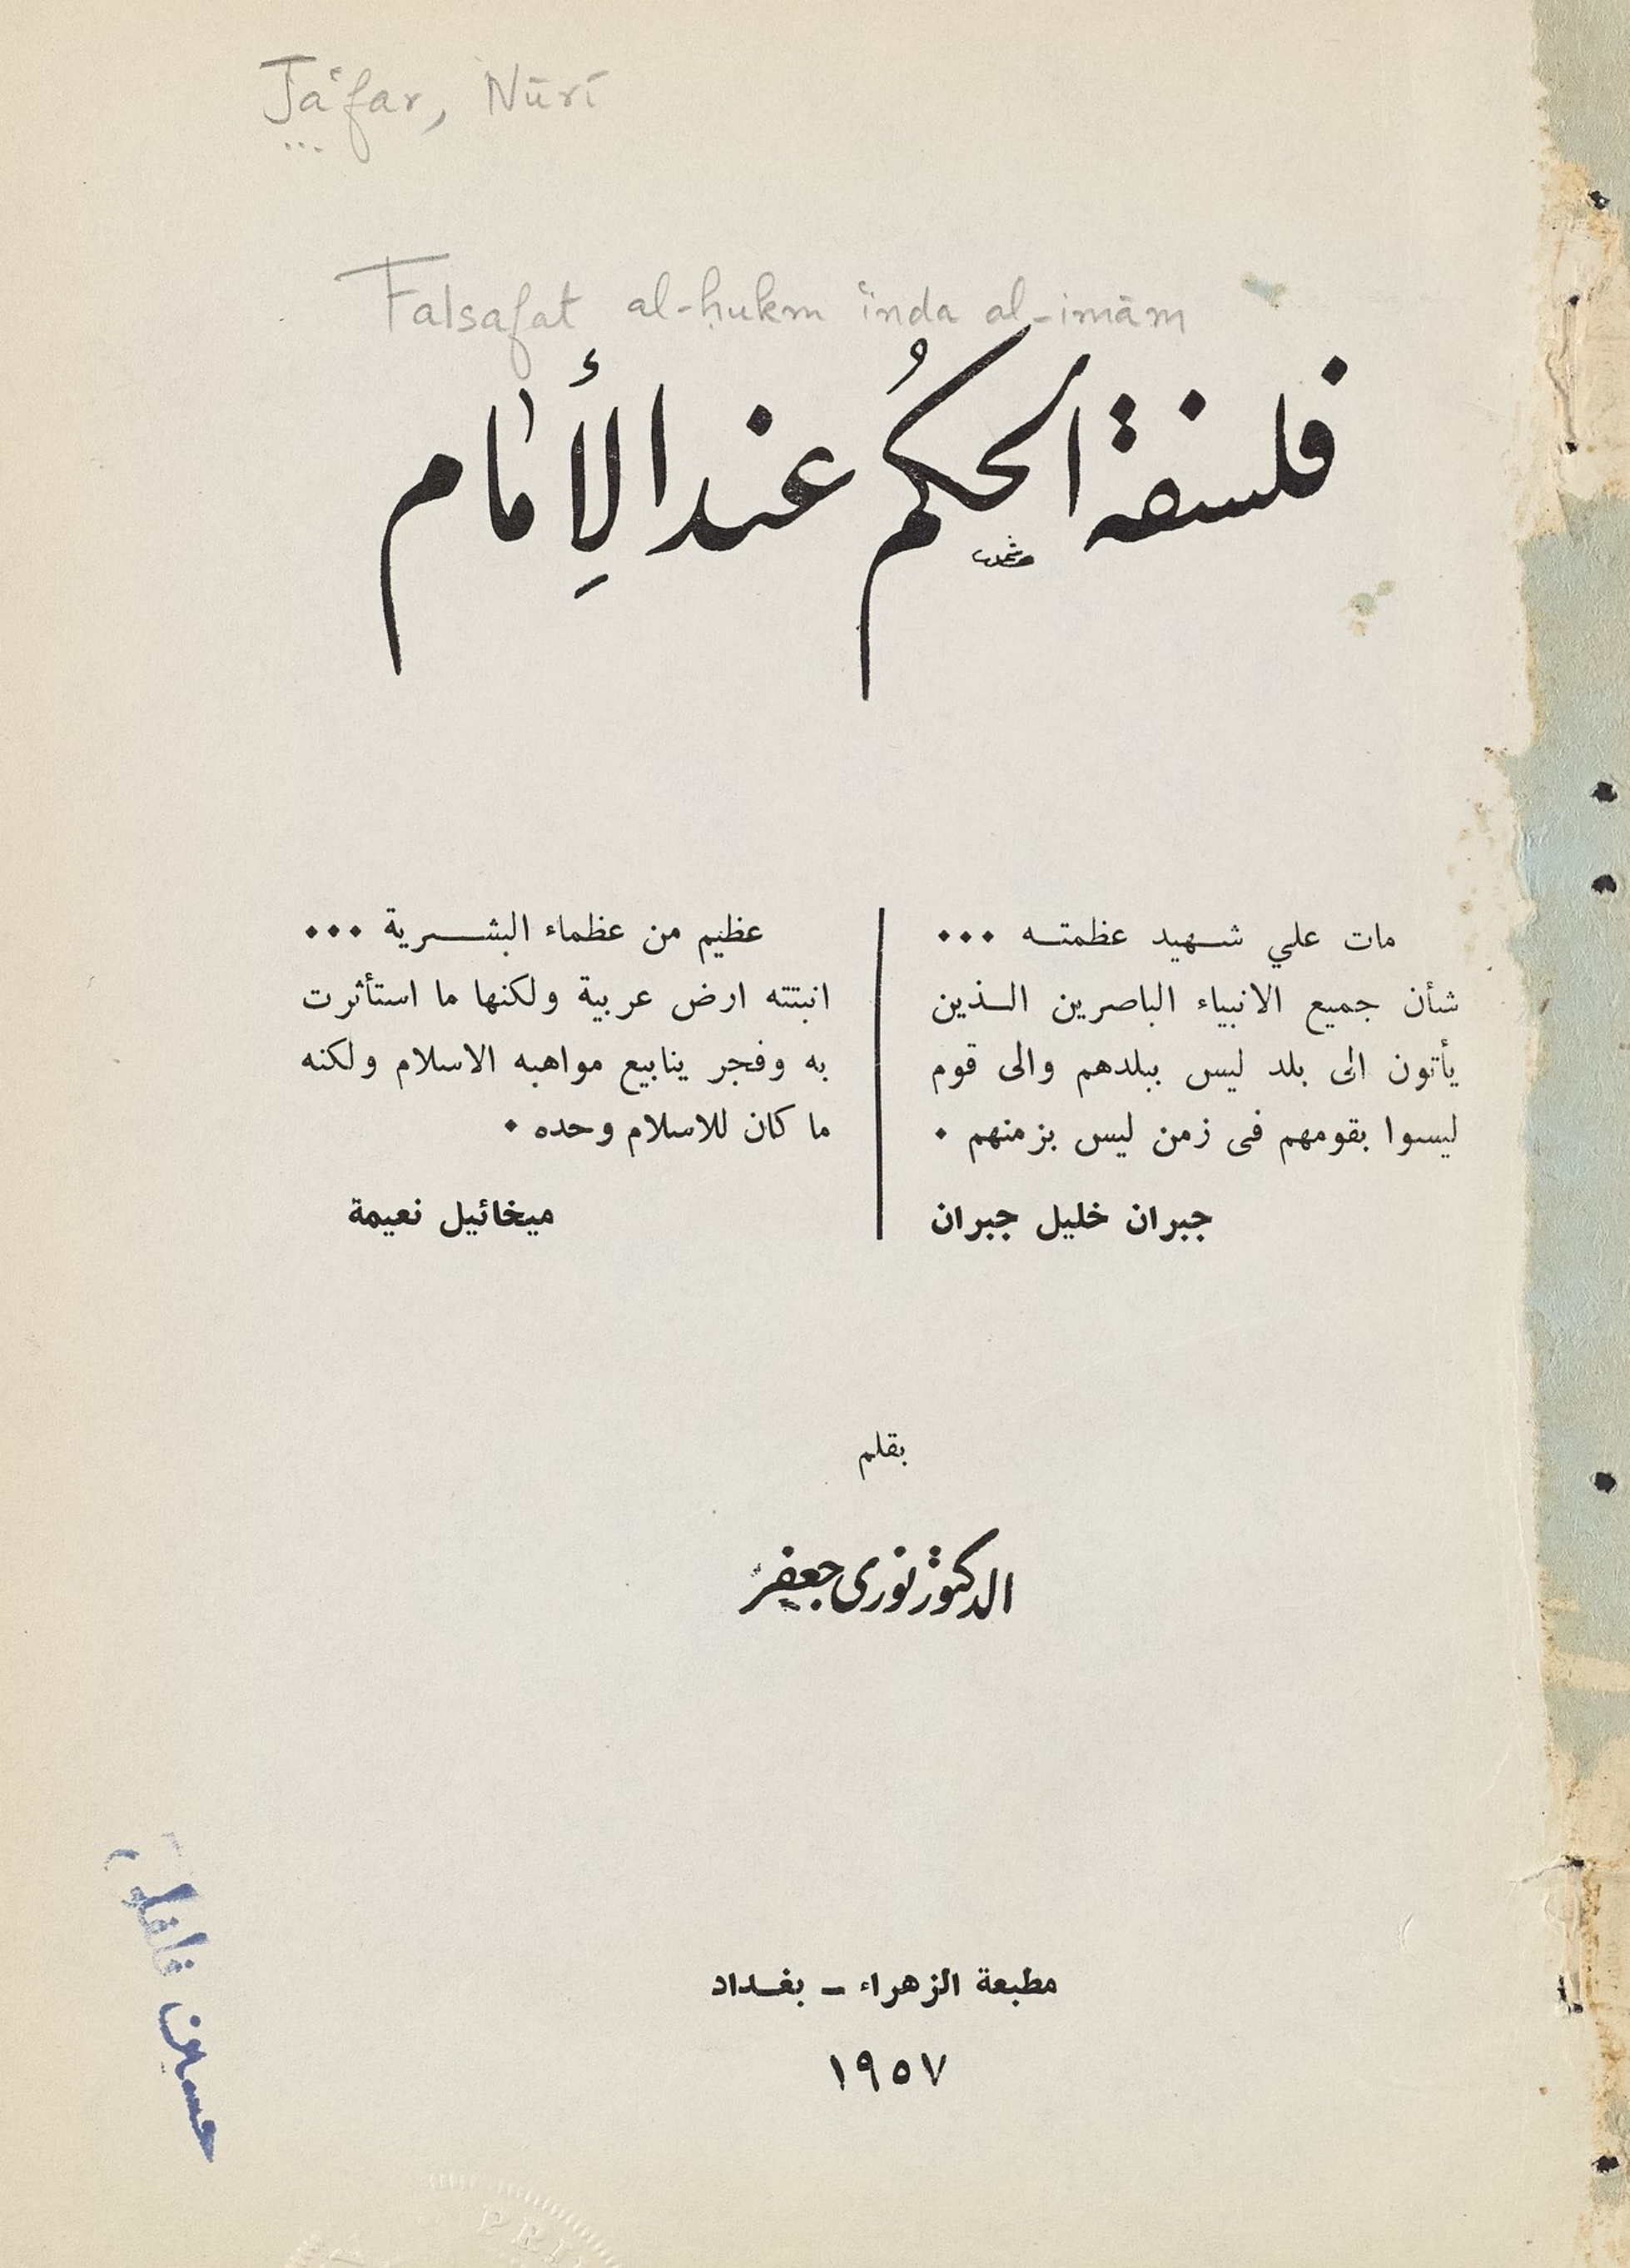 Ja'far, Nūrī
Falsafat al-ḥukm 'inda al-imām
فلسفة الحكُم عند الأِمام
مات علي شهيد عظمته ...
شأن جميع الانبياء الباصرين الذين
يأتون الى بلد ليس ببلدهم والى قوم
ليسوا بقومهم فى زمن ليس بزمنهم .
جبران خليل جبران
عظيم من عظماء البشرية ...
انبتته ارض عربية ولكنها ما استأثرت
به وفجر ينابيع مواهبه الاسلام ولكنه
ما كان للاسلام وحده .
ميخائيل نعيمة
بقلم
الدكتور نورى جعفر
مطبعة الزهراء – بغداد
١٩٥٧
حسين
PRI